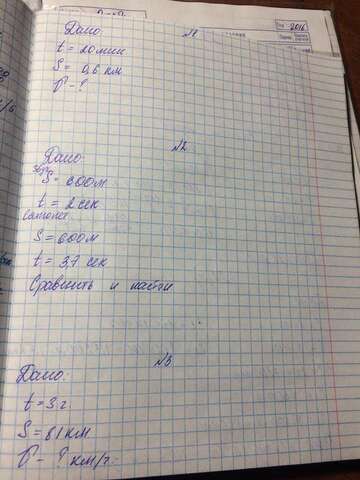 2016
Дано: №1
t = 20 мин
S = 0,6 км
V - ?
№2
Дано:
Звук
S = 600м
t = 2 сек
Самолет
S = 600м
t = 3,7 сек
Сравнить и найти
№3
Дано:
t = 3 г
S = 81 км
V - ? км/г